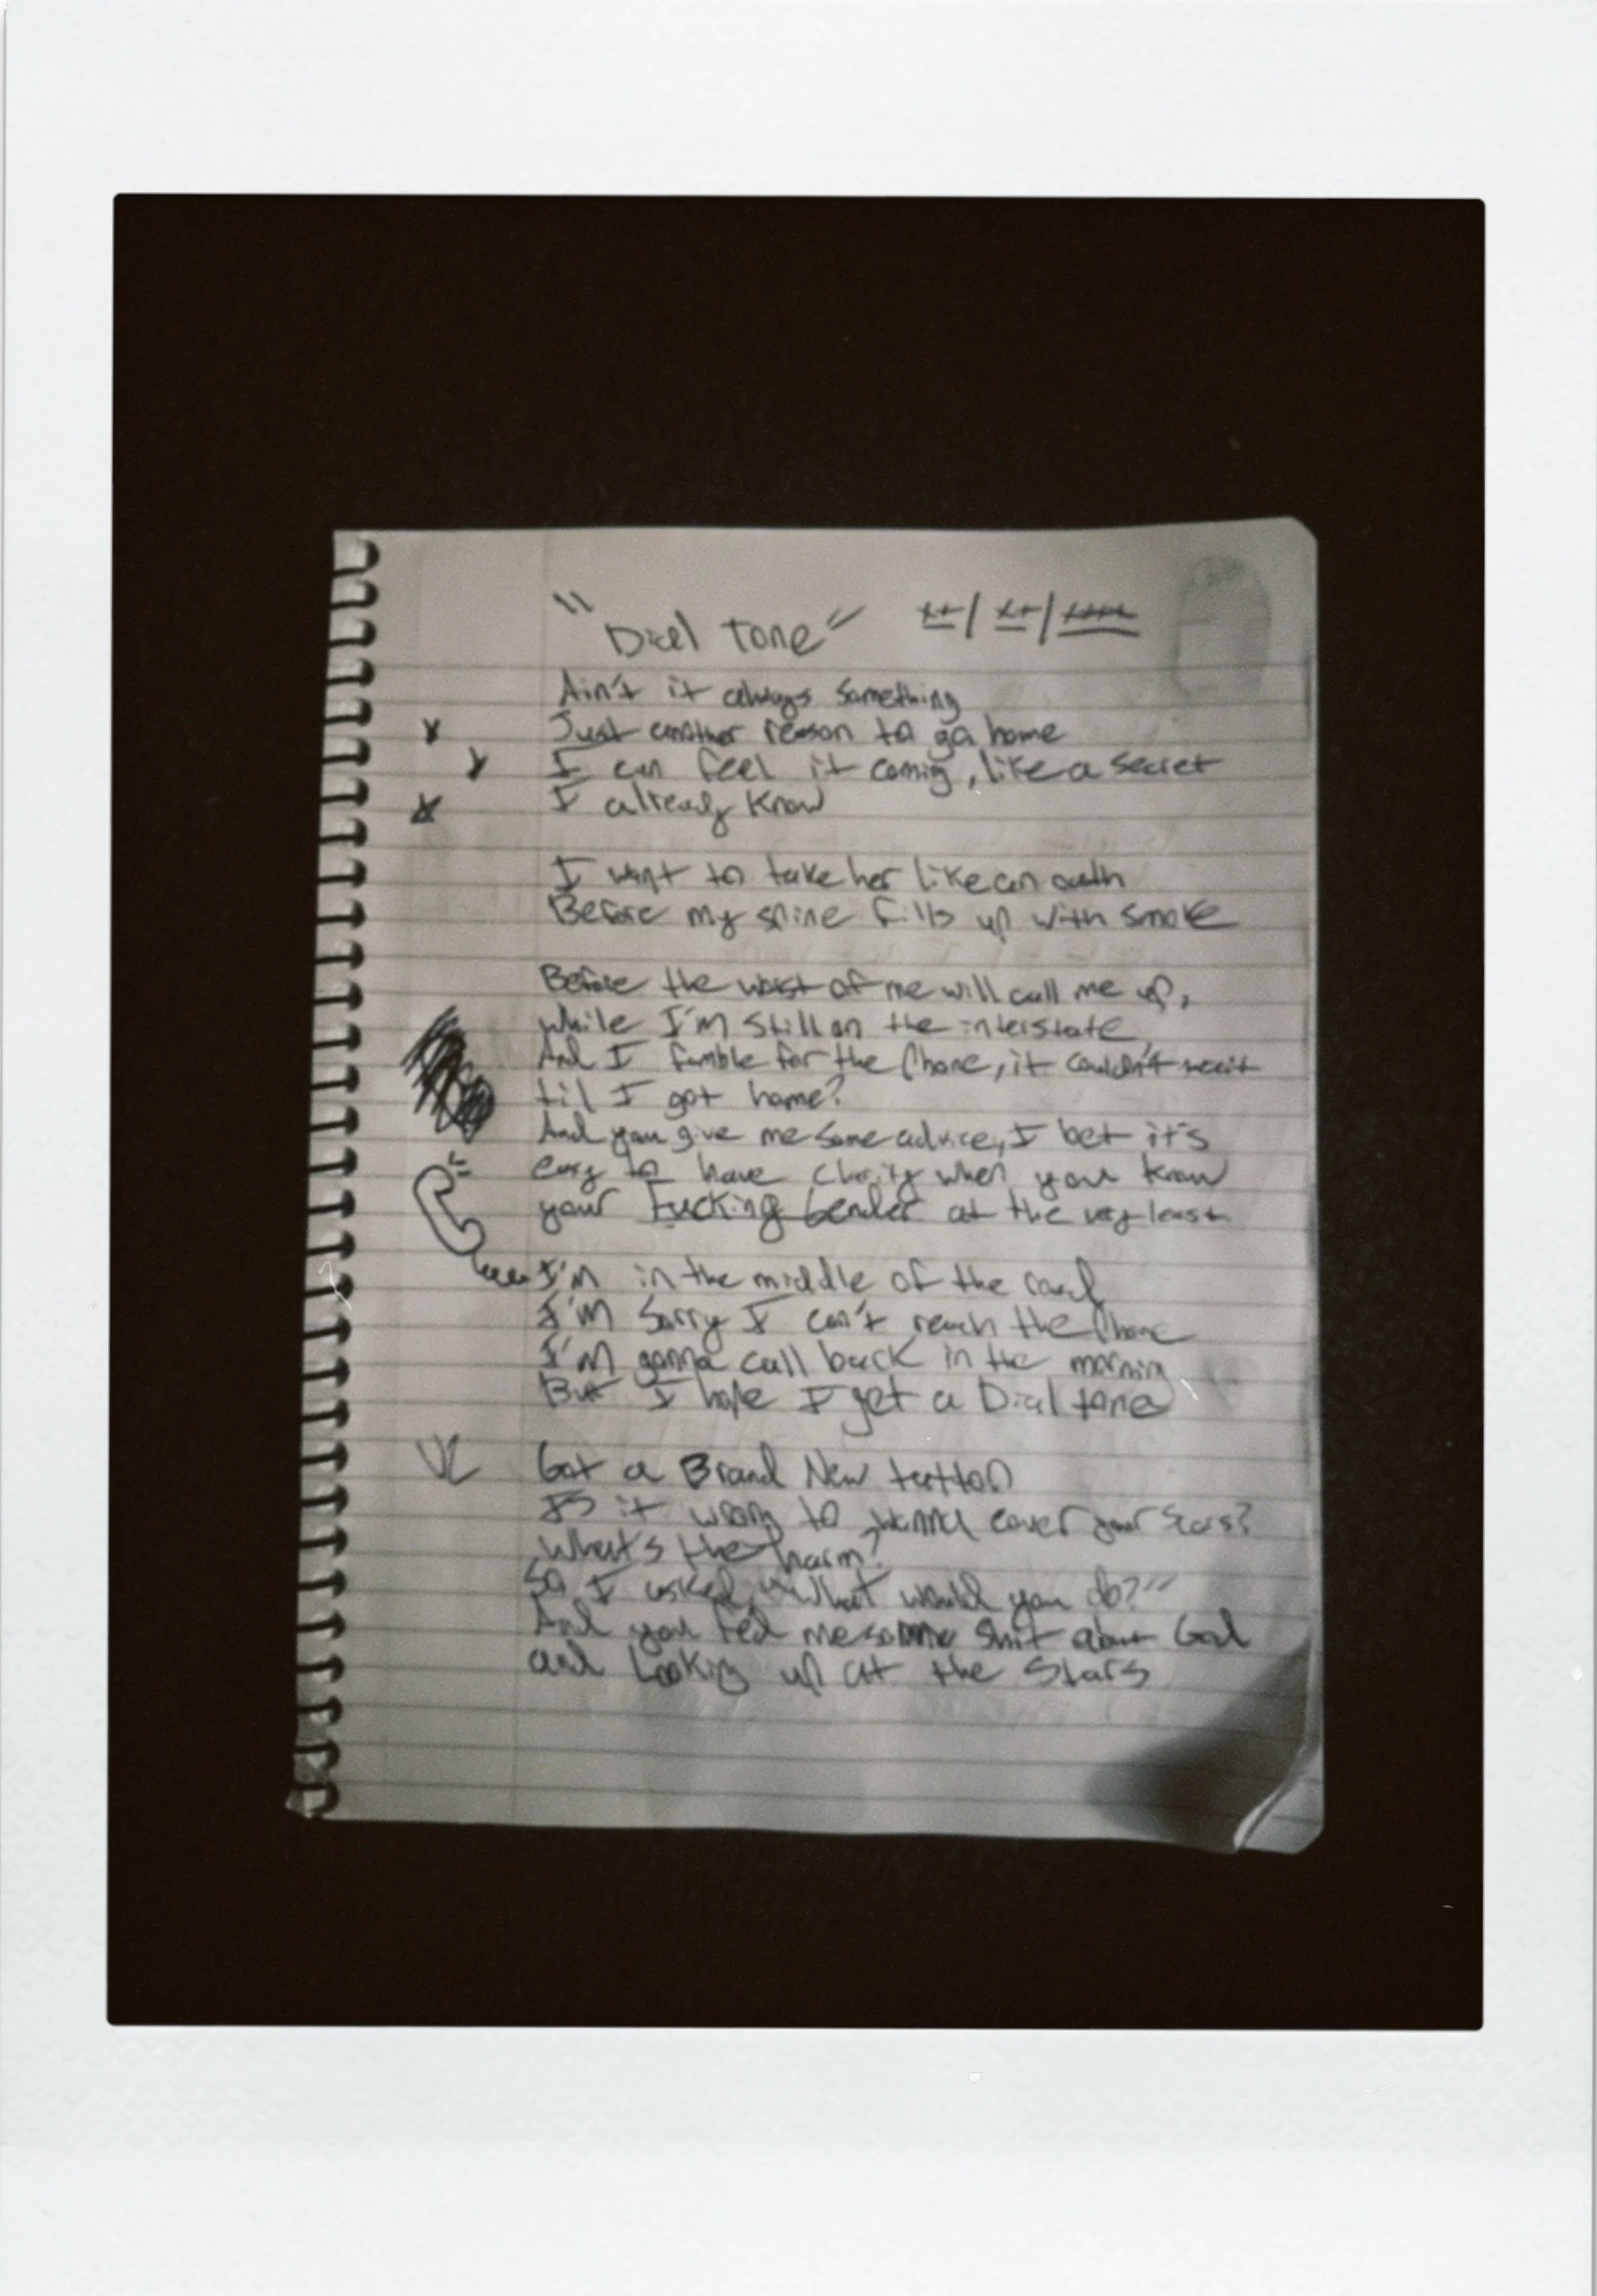 "Dial Tone" xx/xx/xxxx
Ain't it always something
Just another reason to go home
I can feel it coming, like a secret
I already know
I want to take her like an oath
Before my spine fills up with smoke
Before the worst of me will call me up,
while I'm still on the interstate
And I fumble for the phone, it couldn't wait
til I got home?
And you give me some advice, I bet it's
easy to have clarity when you know
your fucking gender at the very least
I'm in the middle of the road
I'm sorry I can't reach the phone
I'm gonna call back in the morning
But I hope I get a Dial tone
Got a Brand New tattoo
Is it wrong to wanna cover your scars?
What's the harm?
So I asked, "What would you do?"
And you fed me some shit about God
and Looking up at the stars